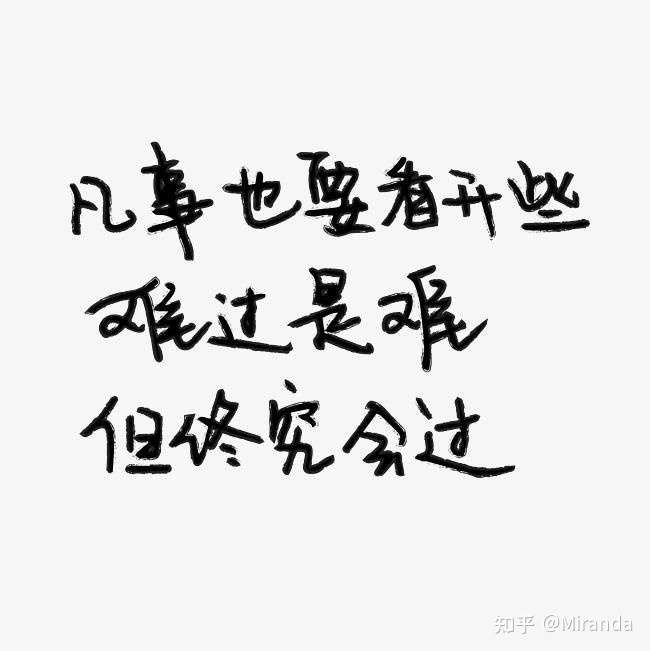 凡事也要看开些
难过是难
但终究会过
知乎 @Miranda